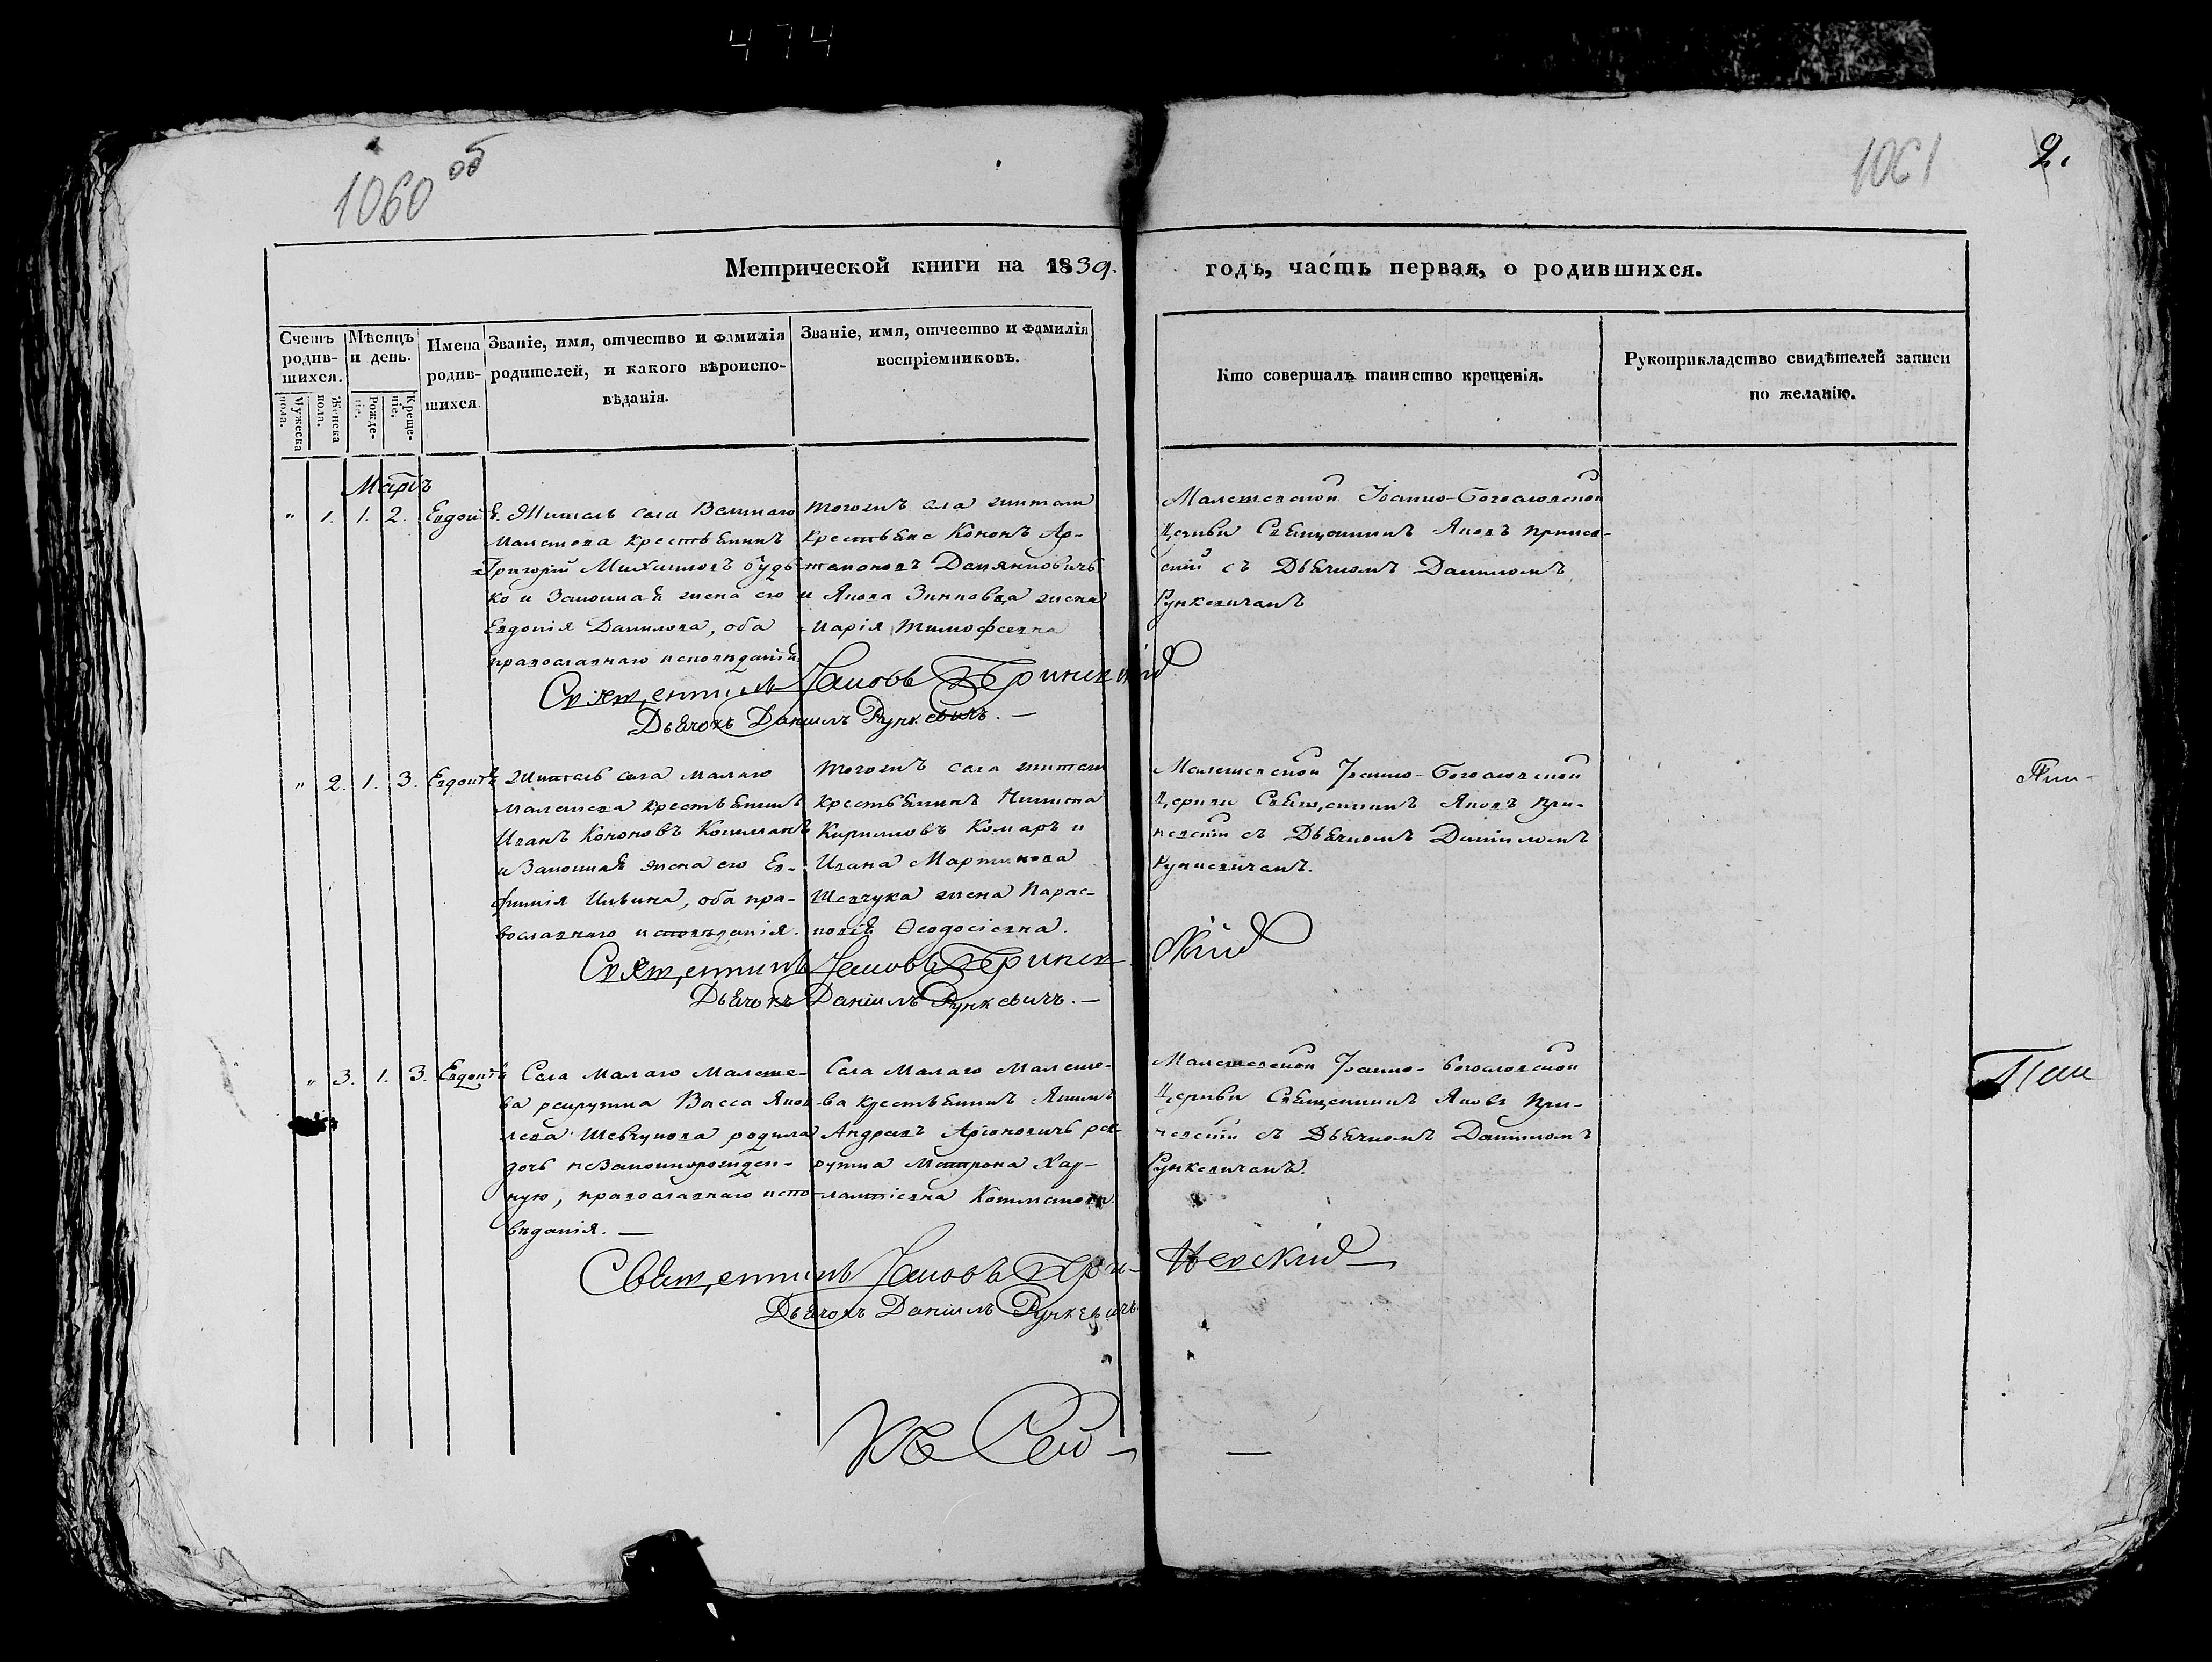 474
1060 об
1061
2.
Метрической книги на 1839.
годъ, часть первая, о родившихся.
Счетъ родив-шихся.
Мужеска пола.
Женска пола.
Мѣсяцъ и день.
Рожде-ніе.
Креще-ніе.
Имена родив-шихся.
Званіе, имя, отчество и фамилія
родителей, и какого вѣроиспо-
вѣданія.
Званіе, имя, отчество и фамилія
воспріемниковъ.
Кто совершалъ таинство крещенія.
Рукоприкладство свидѣтелей записи
по желанію.
Мартъ
" 1. 1. 2.
Житель села Великаго
Малешева крестьянинъ
Григорій Михаиловъ будь-
ко и Законная жена его
Евдокія Данилова, оба
православнаго исповѣданія
тогожъ села жители
крестьяне Кононъ Ар-
тамоновъ
и Якова жена
Марія Тимофеевна
Малешевской Іоанно-Богословской
Церкви Священникъ Яковъ
съ Дьячкомъ Даниломъ
Рункевичемъ
Священникъ Іаковъ
Дьячокъ Даніилъ Рункевичъ. —
" 2. 1. 3.
Житель села Малаго
Малешева крестьянинъ
Иванъ Кононовъ
и Законная жена его Ев-
фимія Ильина, оба пра-
вославнаго исповѣданія.
тогожъ села жители
крестьянинъ Никита
Кириловъ Комаръ и
Ивана Мартинова
Шевчука жена Парас-
ковія Ѳеодосіевна.
Малешевской Іоанно-Богословской
Церкви Священникъ Яковъ При-
невскій съ Дьячкомъ Даниломъ
Рункевичемъ.
Священникъ Іаковъ
скій
Дьячокъ Даніилъ Рункевичъ. —
" 3. 1. 3.
Села Малаго Малеше-
ва рекрутка Васса Яков-
лева Шевчукова родила
дочь незаконнорожден-
ную, православнаго испо-
вѣданія. —
Села Малаго Малеше-
ва крестьянинъ
Андреевъ рек-
рутка Матрона
Малешевской Іоанно-Богословской
Церкви Священникъ Яковъ При-
невскій съ Дьячкомъ Даниломъ
Рункевичемъ.
Священникъ Іаковъ При-
невскій —
Дьячокъ Даніилъ Рункевичъ